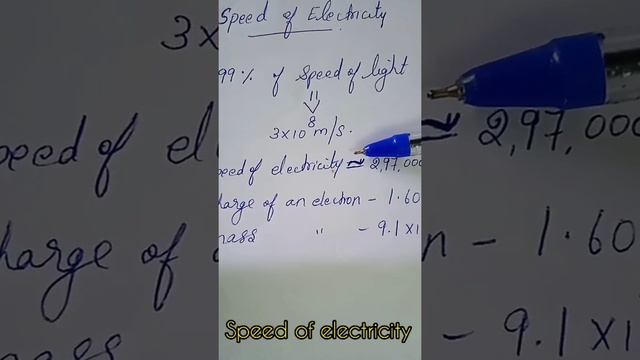 Speed of Electricity
99% of speed of light
=
3×10⁸ m/s.
peed of electricity ≃ 2,97,000
harge of an electron - 1.60
mass " - 9.1×1
Speed of electricity